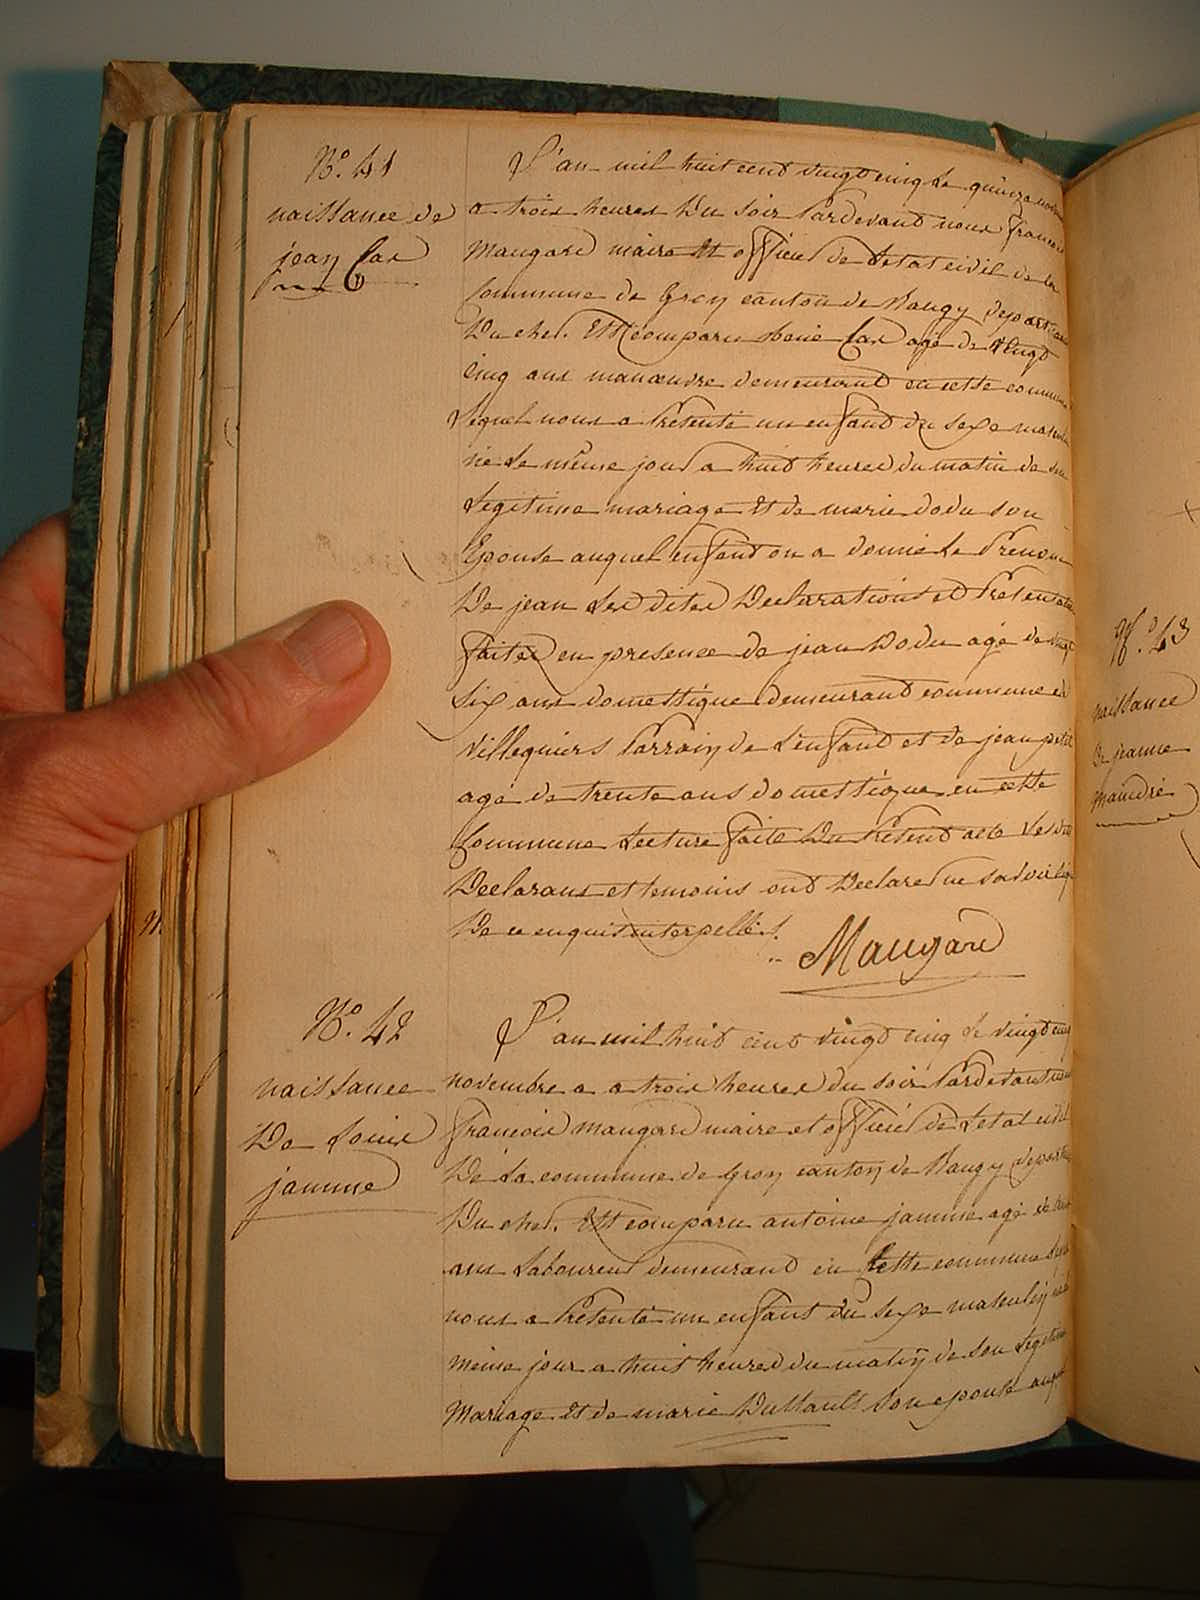 N°. 41
naissance de
jean Cas
L'an mil huit cent vingt cinq le quinze
a trois heures du soir Pardevant nous francois
Maugard maire et officier de letat civil de la
Commune de Groy canton de Baugy
Du cher. Est comparu Cas agé de vingt
cinq ans manoeuvre demeurant en cette commune
lequel nous a Présenté un enfant du sexe
né le même jour a huit heures du matin de son
Légitime mariage et de marie dodu son
Epouse auquel enfant on a donné le Prenom
De jean Les dites Declarations et
faites en presence de jean Dodu agé de vingt
six ans domestique demeurant commune de
Villequiers Parrain de L'enfant et de jean petit
agé de trente ans domestique en cette
Commune Lecture faite Du Présent acte Les dits
Declarans et temoins ont Declaré ne savoir
De ce enquis interpellés.
Maugard
N°. 42
naissance
De Louis
jamme
L'an mil huit cent vingt cinq le vingt cinq
novembre a a trois heures du soir Pardevant nous
francois maugard maire et officier de Letat civil
De La commune de Groy canton de Baugy
Du cher. Est comparu antoine jamme agé de
ans Laboureur demeurant en Cette commune
nous a Présenté un enfant du sexe masculin
même jour a huit heures du matin de son Legitime
Mariage et de marie Dussault son epouse
N°. 43
naissance
De jeanne
maudré